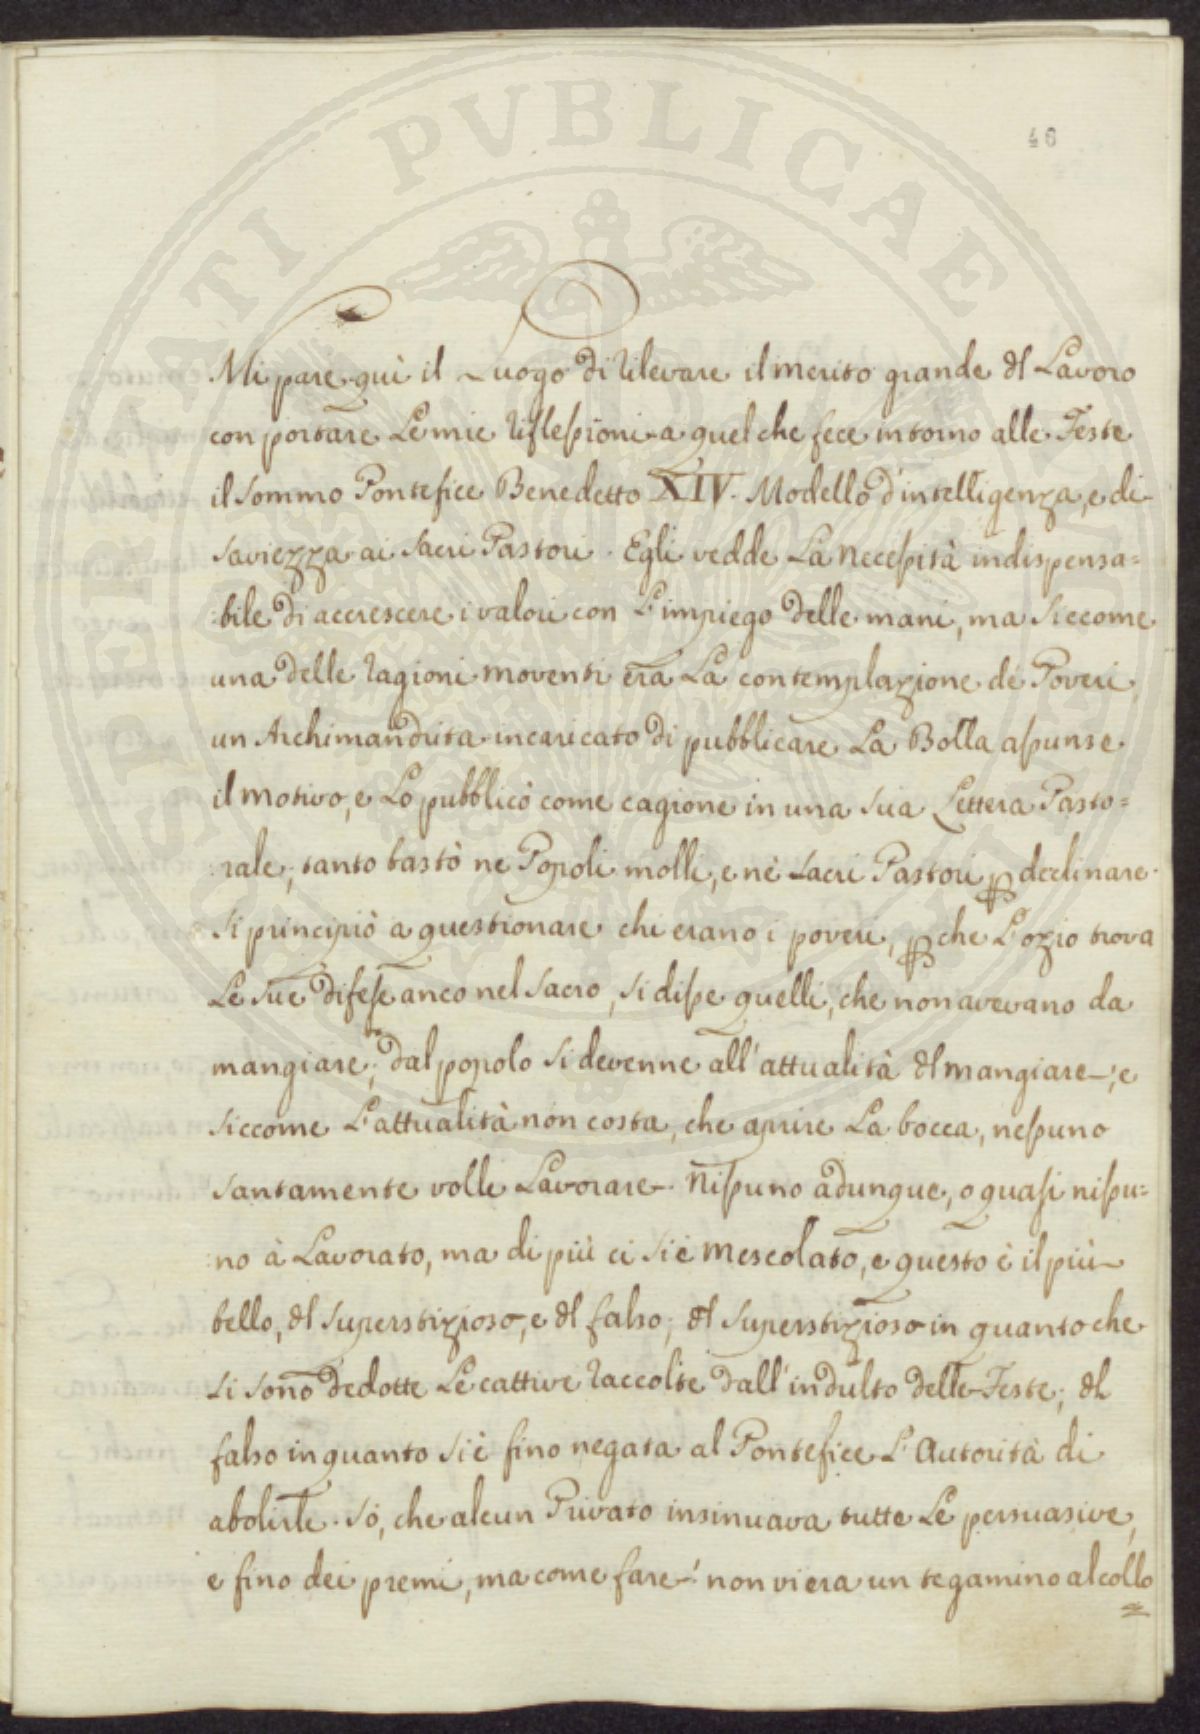 PROSPERITATI PVBLICAE
46
Mi pare quì il Luogo di rilevare il merito grande dl Lavoro
con portare Le mie riflessioni a quel che fece intorno alle Feste
il Sommo Pontefice Benedetto XIV. Modello d'intelligenza, e di
Saviezza ai Sacri Pastori. Egli vedde La necessità indispensa=
:bile di accrescere i valori con L'impiego delle mani, ma Siccome
una delle ragioni moventi era La contemplazione de Poveri,
un Archimandrita incaricato di pubblicare La Bolla assunse
il motivo, e Lo pubblicò come cagione in una Sua Lettera Pasto=
:rale; tanto bastò ne Popoli molli, e ne Sacri Pastori p declinare.
Si principiò a questionare chi erano i poveri, p che L'ozio trova
Le Sue difese anco nel Sacro, Si disse quelli, che non avevano da
mangiare; dal popolo Si devenne all'attualità dl mangiare; e
Siccome L'attualità non costa, che aprire La bocca, nessuno
Santamente volle Lavorare. Nissuno adunque, o quasi nissu=
:no à Lavorato, ma di più ci Si è mescolato, e questo è il più
bello, dl Superstizioso, e dl falso; dl Superstizioso in quanto che
Si sono dedotte Le cattive raccolte dall'indulto delle Feste; dl
falso in quanto Si è fino negata al Pontefice L'Autorità di
abolirle. Sò, che alcun Privato insinuava tutte Le persuasive,
e fino dei premi, ma come fare! non vi era un tegamino al collo